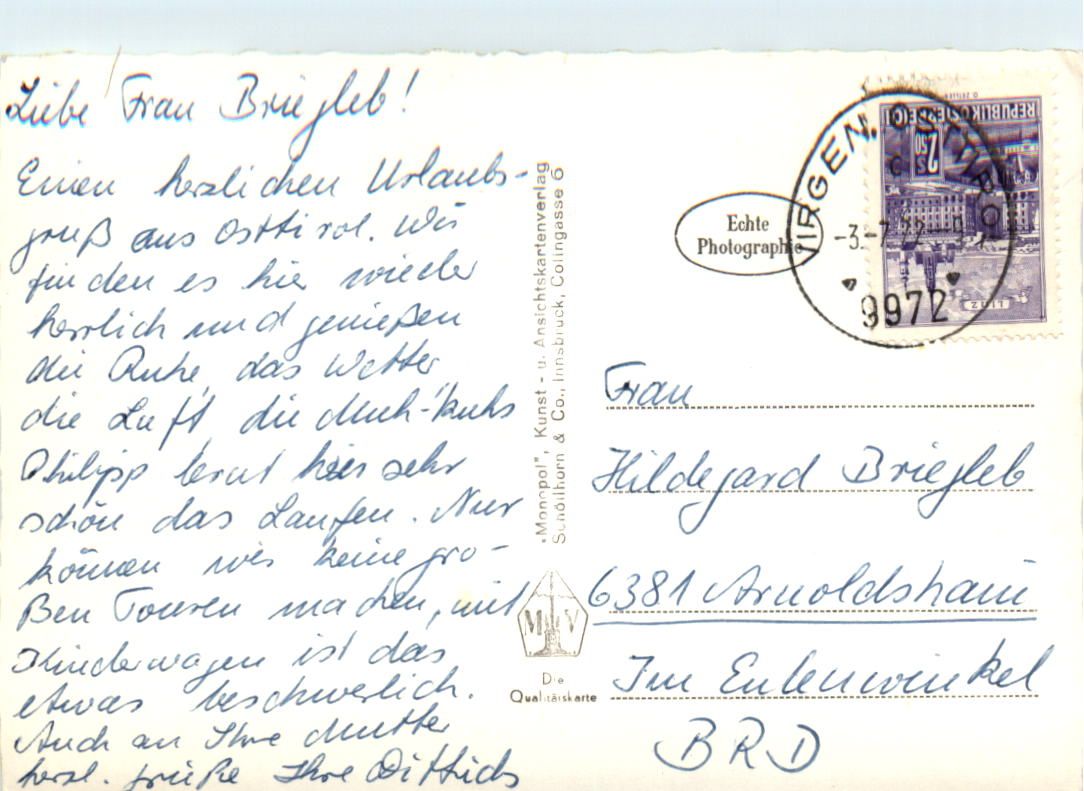 Liebe Frau Briegleb!
Einen herzlichen Urlaubs-
gruß aus Osttirol. Wir
finden es hier wieder
herrlich und genießen
die Ruhe, das Wetter
die Luft, die Muh-Kuhs
Philipp lernt hier sehr
schön das Laufen. Nur
können wir keine gro-
ßen Touren machen, mit
Kinderwagen ist das
etwas beschwerlich.
Auch an Ihre Mutter
herzl. Grüße Ihre Dittrichs
"Monopol", Kunst- u. Ansichtskartenverlag
Schöllhorn & Co., Innsbruck, Colingasse 6
M V
Die
Qualitätskarte
Echte
Photographie
VIRGEN, OSTTIROL
-3.-7.72
9972
REPUBLIK ÖSTERREICH
S 2.50
LINZ
Frau
Hildegard Briegleb
6381 Arnoldshain
Im Eulenwinkel
BRD